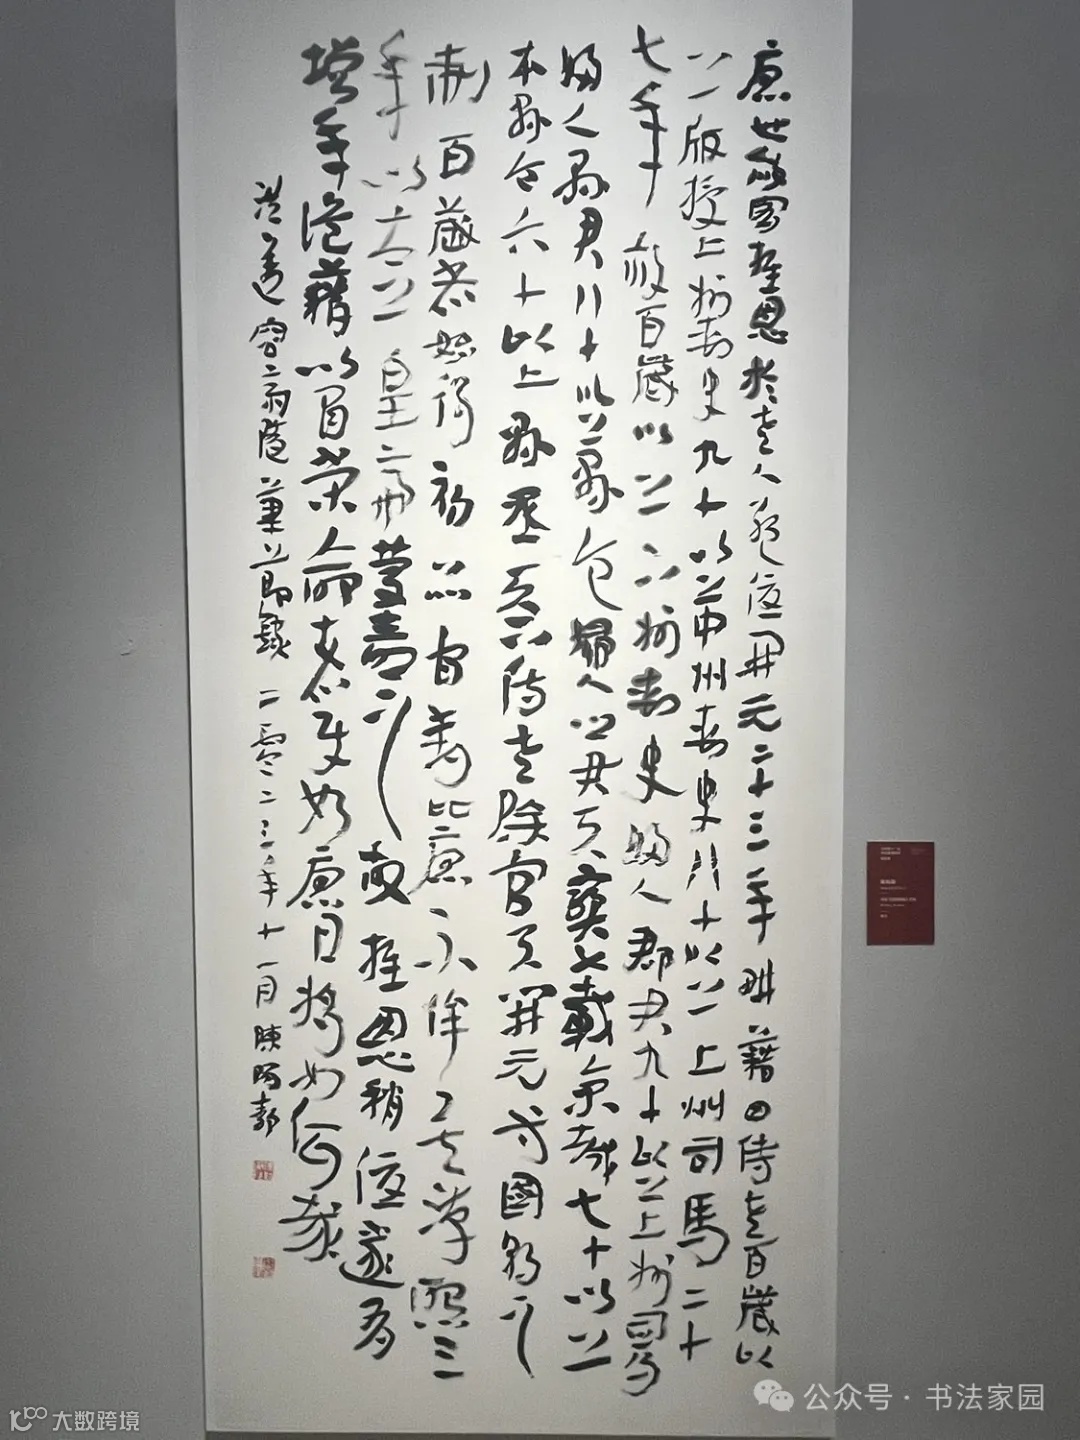 唐世赦宥推恩於老人絕優開元二十三年耕藉田侍老百歲以
上版授上州刺史九十以上中州刺史八十以上上州司馬二十
七年赦百歲以上下州刺史婦人郡君九十以上上州司馬
婦人縣君八十以上縣令婦人鄉君天寶七載京城七十以上
本縣令六十以上縣丞天下侍老除官與開元等國朝之
制百歲者始得初品官封比唐不侔矣淳熙三
年以太上皇帝慶壽之故推恩稍優遂有
增年詭藉以冒榮命者使如唐日將如何哉
洪邁容齋隨筆節錄二零二三年十一月陳
公众号·书法家园
大数跨境